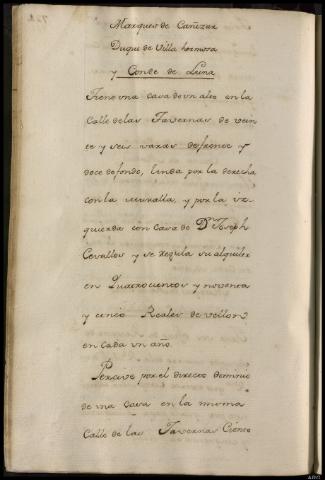 Marques de Cañizar
Duque de Villa hermosa
y Conde de Luna
Tiene una casa de un alto en la
Calle de las Tavernas de vein
te y seis varas de frente y
doce de fondo, linda por la derecha
con la muralla, y por la iz
quierda con casa de Dn Joseph
Cevallos y se regula su alquiler
en Quatrocientos y noventa
y cinco Reales de vellon
en cada un año.
Percive por el directo dominio
de una casa en la misma
Calle de las Tavernas Ciento